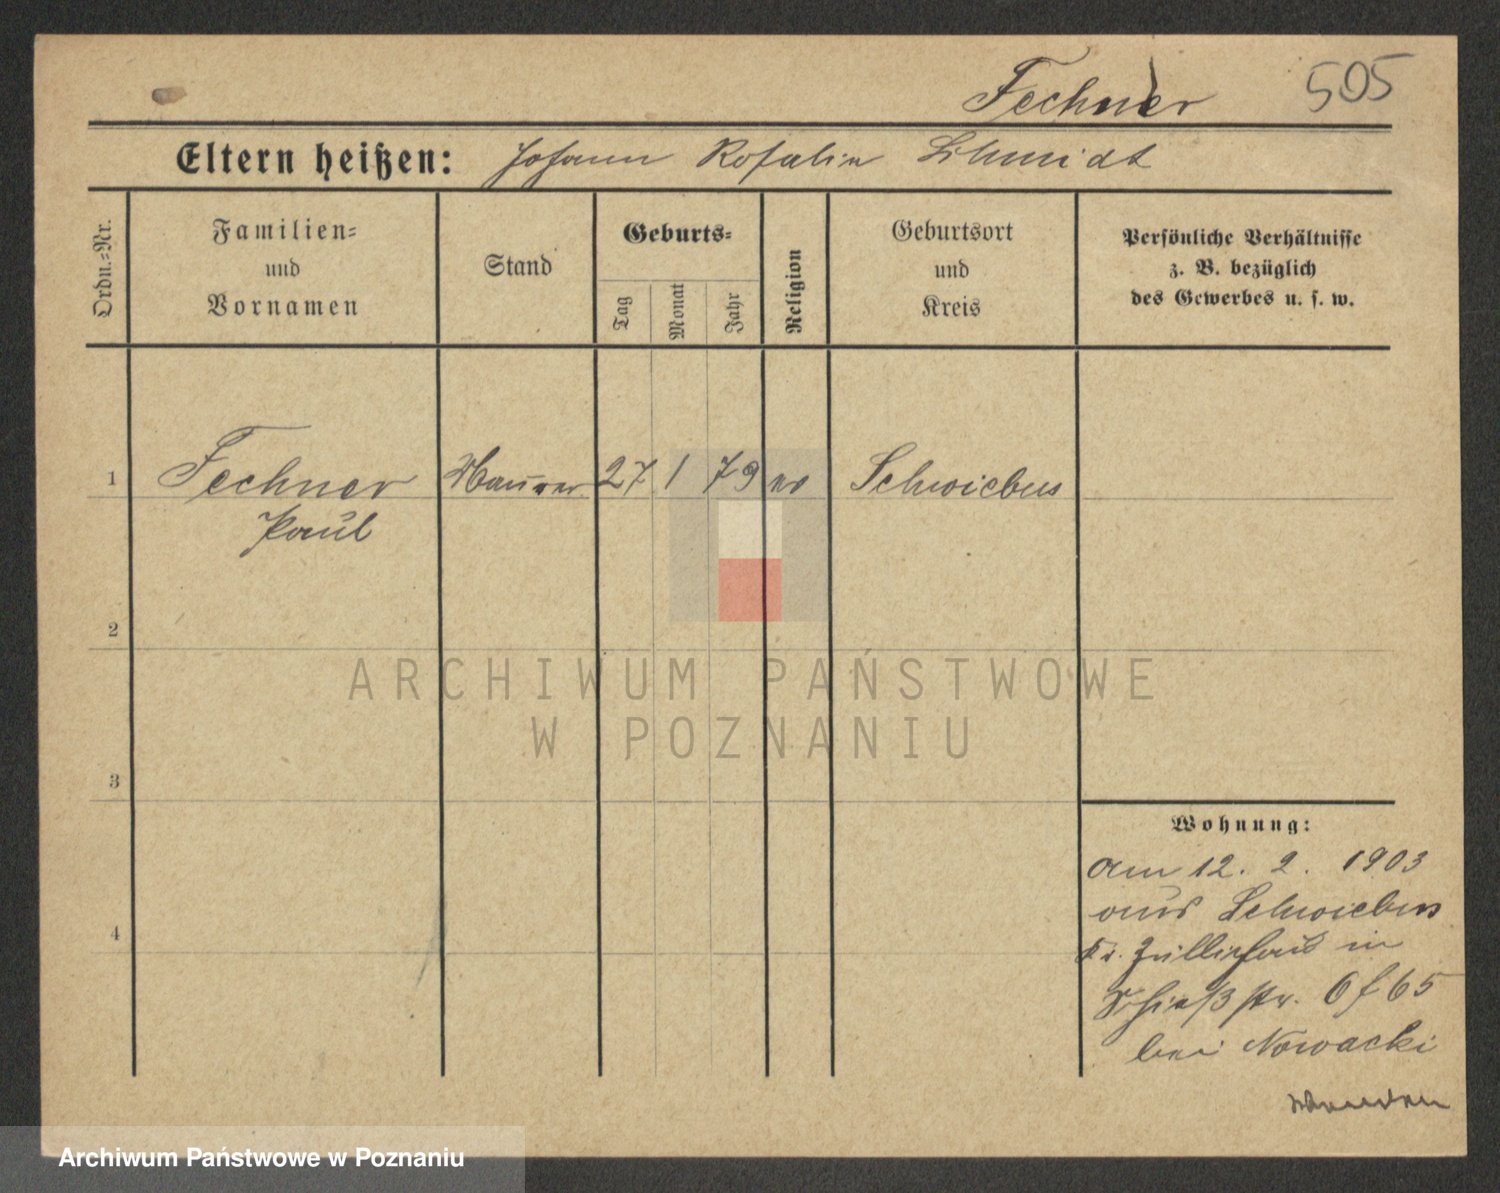 Fechner 505
Eltern heißen: Johann Rosalie Schmidt
Ordn.-Nr.
Familien-
und
Vornamen
Stand
Geburts-
Tag
Monat
Jahr
Religion
Geburtsort
und
Kreis
Persönliche Verhältnisse
z. B. bezüglich
des Gewerbes u. s. w.
1 Fechner Maurer 27 1 79 ev Schwiebus
Paul
2
3
4
ARCHIWUM PAŃSTWOWE
W POZNANIU
Wohnung:
am 12. 2. 1903
aus Schwiebus
Kr. Züllichau in
Schießstr. 6 f 65
bei Nowacki
Archiwum Państwowe w Poznaniu